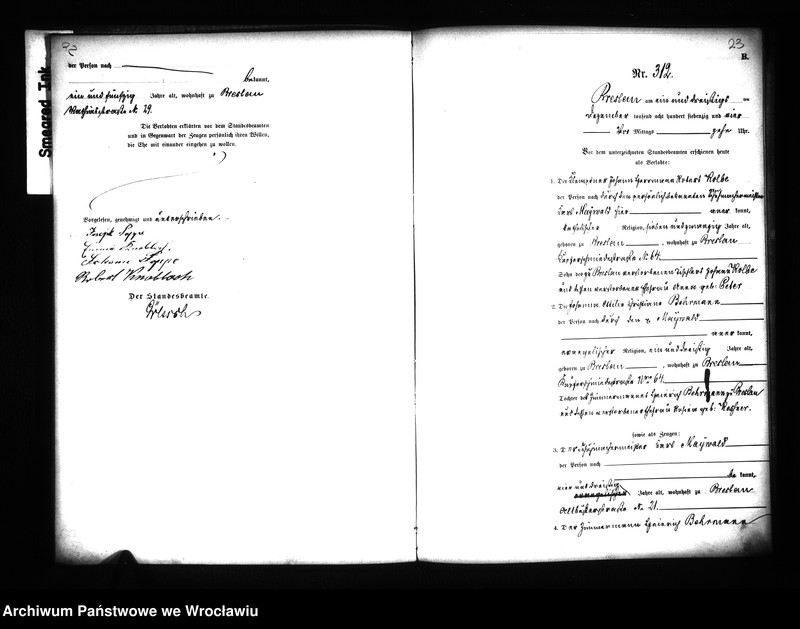 der Person nach
bekannt,
ein und fünfzig Jahre alt, wohnhaft zu Breslau
Nr. 29.
Die Verlobten erklärten vor dem Standesbeamten
und in Gegenwart der Zeugen persönlich ihren Willen,
die Ehe mit einander eingehen zu wollen.
Vorgelesen, genehmigt und unterschrieben.
Emma Knobloch.
Robert Knobloch
Der Standesbeamte
23
B.
Nr. 312.
Breslau am ein und dreißigsten
Dezember tausend acht hundert siebenzig und vier
Vor Mittags zehn Uhr.
Vor dem unterzeichneten Standesbeamten erschienen heute
als Verlobte:
1. Der Johann Herrmann Robert Kolbe
der Person nach durch den persönlich bekannten Schuhmachermeister
Carl Maywald hier aner kannt,
katholischer Religion, sieben und zwanzig Jahre alt,
geboren zu Breslau, wohnhaft zu Breslau
Kupferschmiedestraße No. 64
Sohn des zu Breslau verstorbenen Tischlers Johann Kolbe
und dessen verstorbener Ehefrau Anna geb: Peter
2. Die Johanna Ottilie Christiane Bohrmann
der Person nach durch den p. Maywald
aner kannt,
evangelischer Religion, ein und dreißig Jahre alt,
geboren zu Breslau, wohnhaft zu Breslau
Kupferschmiedestraße No. 64
Tochter des Zimmermannes Heinrich Bohrmann zu Breslau
und dessen verstorbener Ehefrau Rosina geb:
sowie als Zeugen:
3. Der Schuhmachermeister Carl Maywald
der Person nach
be kannt,
vier und dreißig
Jahre alt, wohnhaft zu Breslau
Altbüßerstraße No 21.
4. Der Zimmermann Heinrich Bohrmann
Smegred Ink
Archiwum Państwowe we Wrocławiu